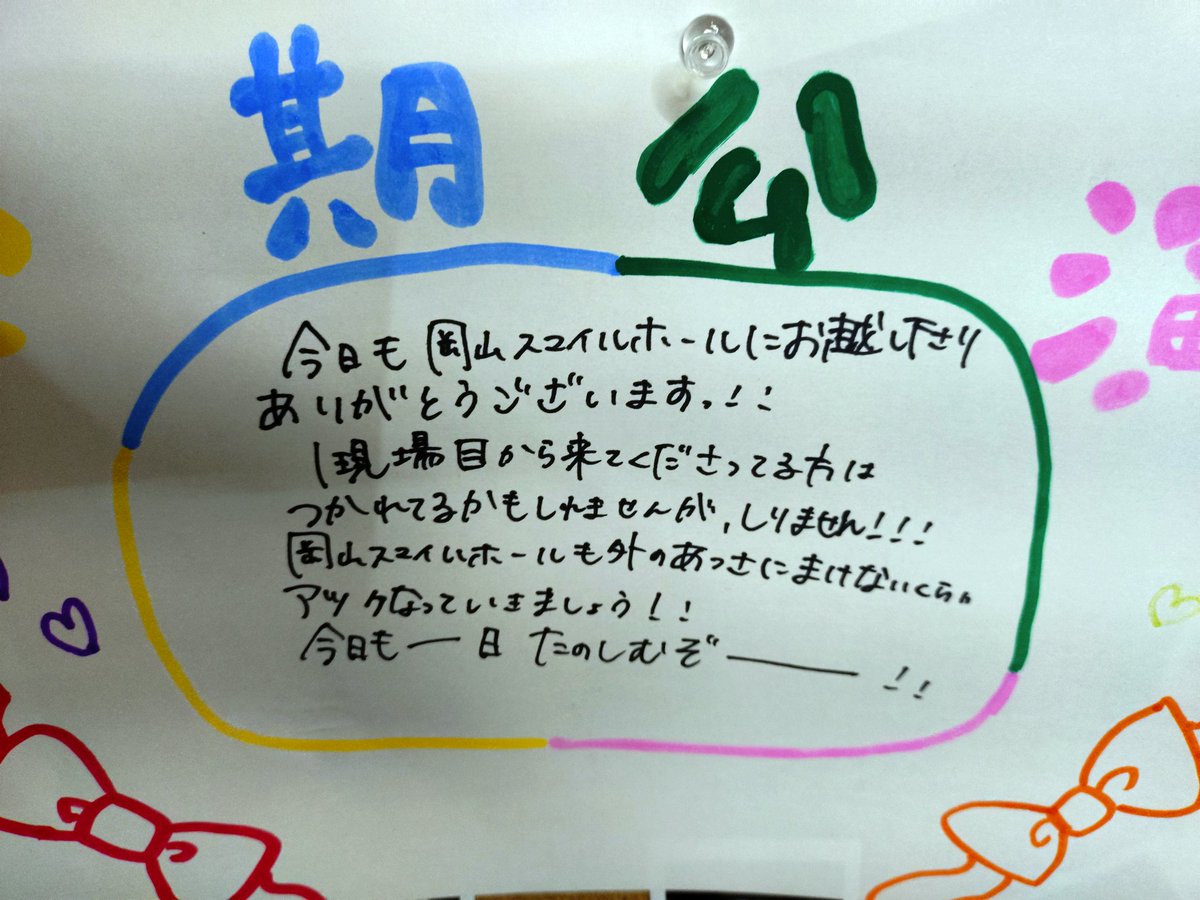 期公演
今日も岡山スマイルホールにお越し下さり
ありがとうございますっ!!
1現場目から来てくださってる方は
つかれてるかもしれませんが、しりません!!!
岡山スマイルホールも外のあつさにまけないくらい
アツクなっていきましょう!!
今日も一日 たのしむぞー!!